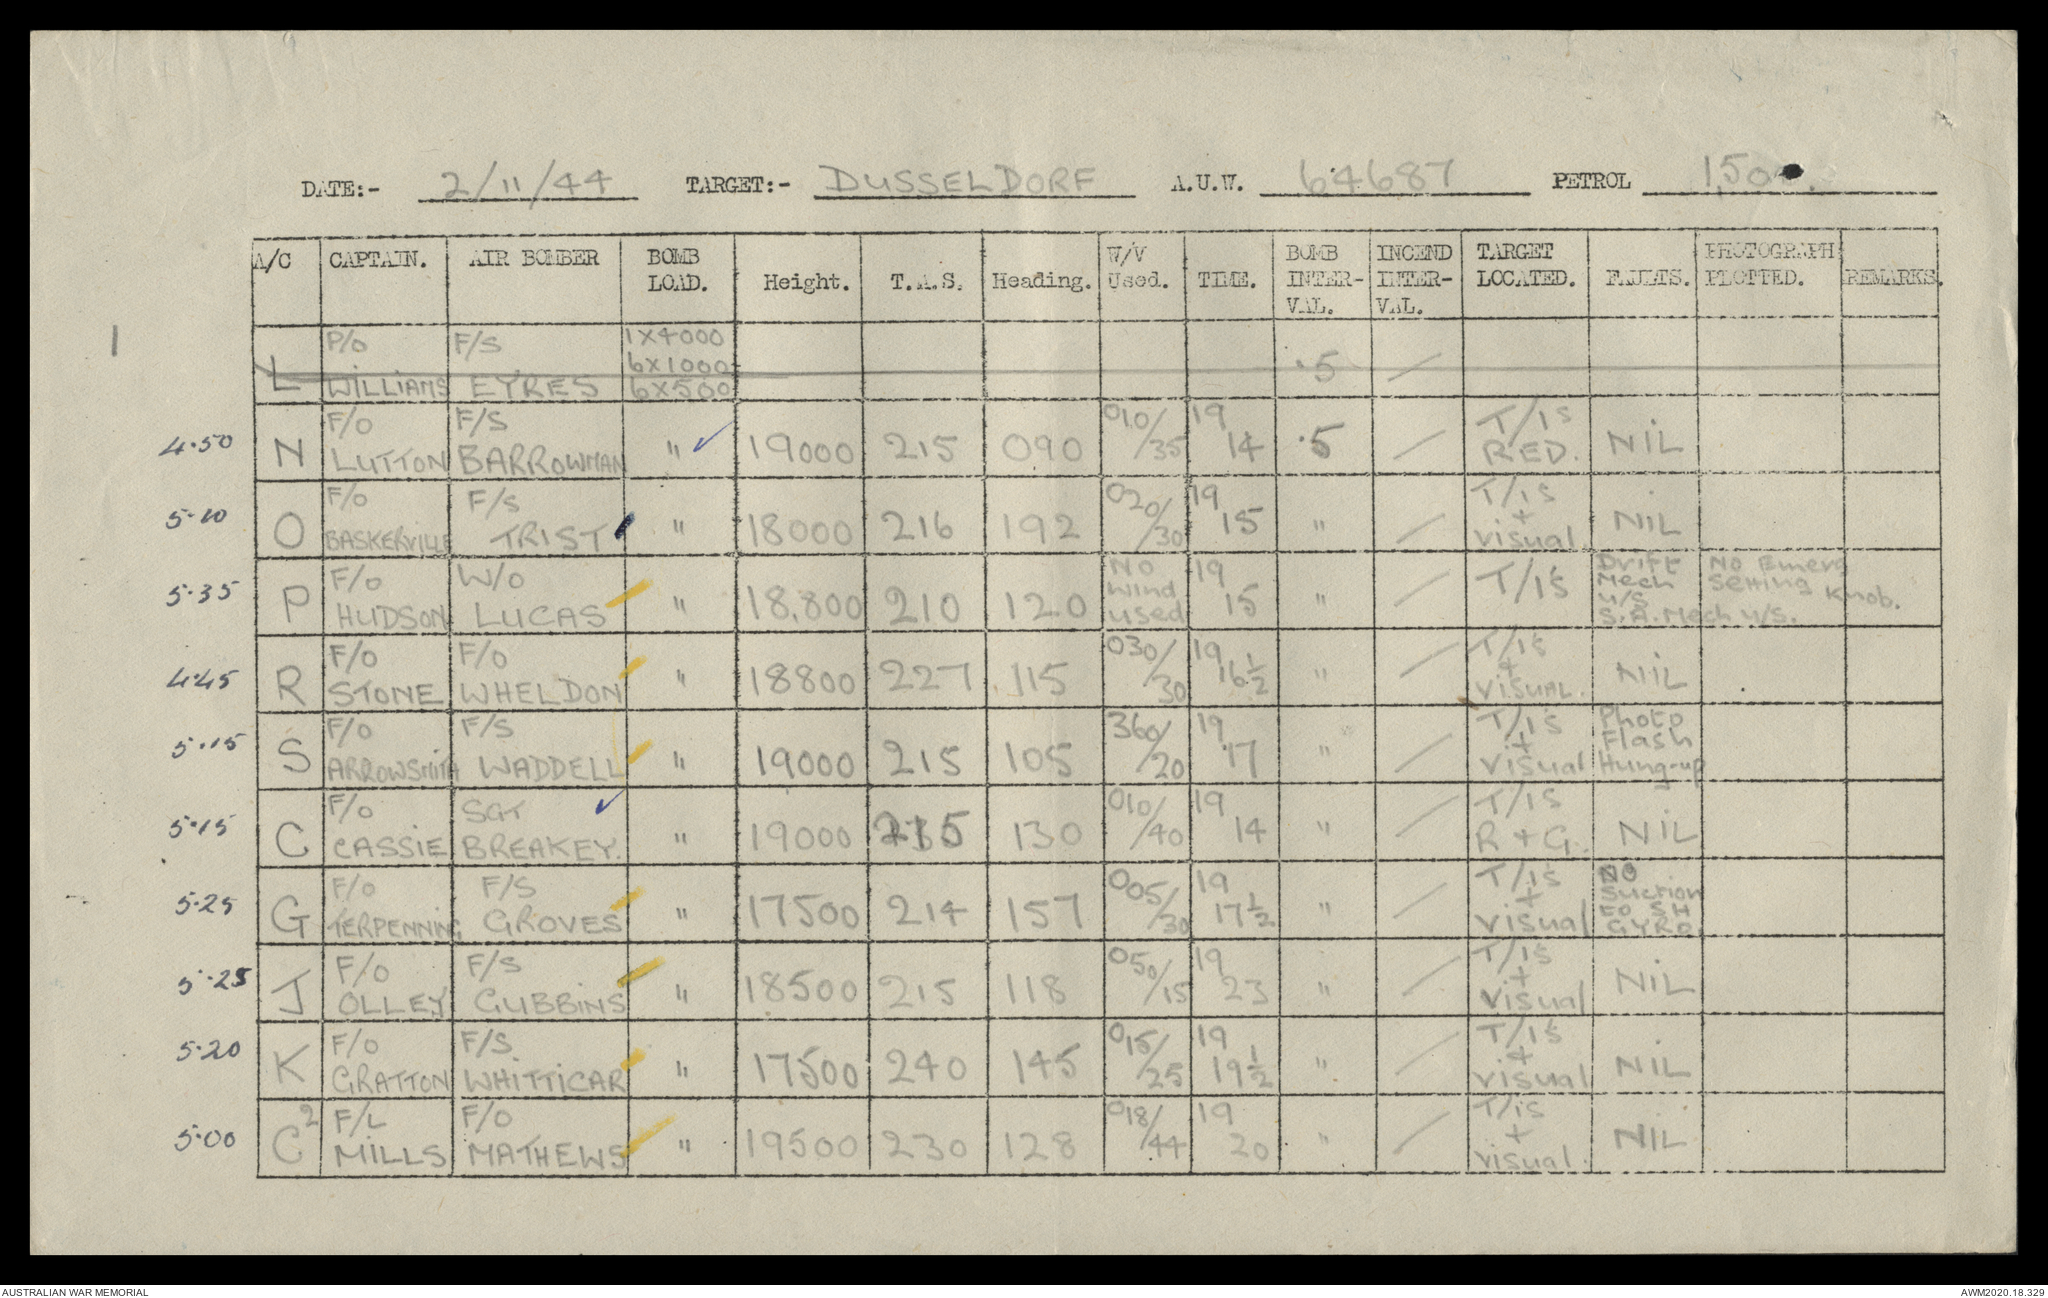 DATE:- 2/11/44 TARGET:- DUSSELDORF A.U.W. 64687 PETROL
A/C CAPTAIN. AIR BOMBER BOMB LOAD. Height. T.A.S. Heading. W/V Used. TIME. BOMB INTER-VAL. INCEND INTER-VAL. TARGET LOCATED. FAULTS. PHOTOGRAPH PLOTTED. REMARKS.
1 L P/O WILLIAMS F/S EYRES 1X4000 6X1000 6X500 .5 /
4.50 N F/O LUTTON F/S BARROWMAN " ✓ 19000 215 090 010/35 19 14 .5 / T/IS RED. NIL
5.10 O F/O BASKERVILLE F/S TRIST " 18000 216 192 020/30 19 15 " / T/IS + visual NIL
5.35 P F/O HUDSON W/O LUCAS " 18,800 210 120 No wind used 19 15 " / T/I'S Drift Mech U/S S.A. Mech U/S. No Emerg Setting Knob.
4.45 R F/O STONE F/O WHELDON " 18800 227 115 030/30 19 16½ " / T/IS + VISUAL. NIL
5.15 S F/O ARROWSMITH F/S WADDELL " 19000 215 105 360/20 19 17 " / T/IS + visual Photo Flash Hung-up
5.15 C F/O CASSIE SGT BREAKEY. ✓ " 19000 215 130 010/40 19 14 " / T/IS R + G. NIL
5.25 G F/O TERPENNING F/S GROVES " 17500 214 157 005/30 19 17½ " / T/IS + visual NO Suction to S.H GYRO.
5.25 J F/O OLLEY F/S GUBBINS " 18500 215 118 050/15 19 23 " / T/IS + visual NIL
5.20 K F/O GRATTON F/S WHITTICAR " 17500 240 145 015/25 19 19½ " / T/IS + visual NIL
5.00 C² F/L MILLS F/O MATHEWS " 19500 230 128 018/44 19 20 " / T/IS + visual. NIL
AUSTRALIAN WAR MEMORIAL AWM2020.18.329